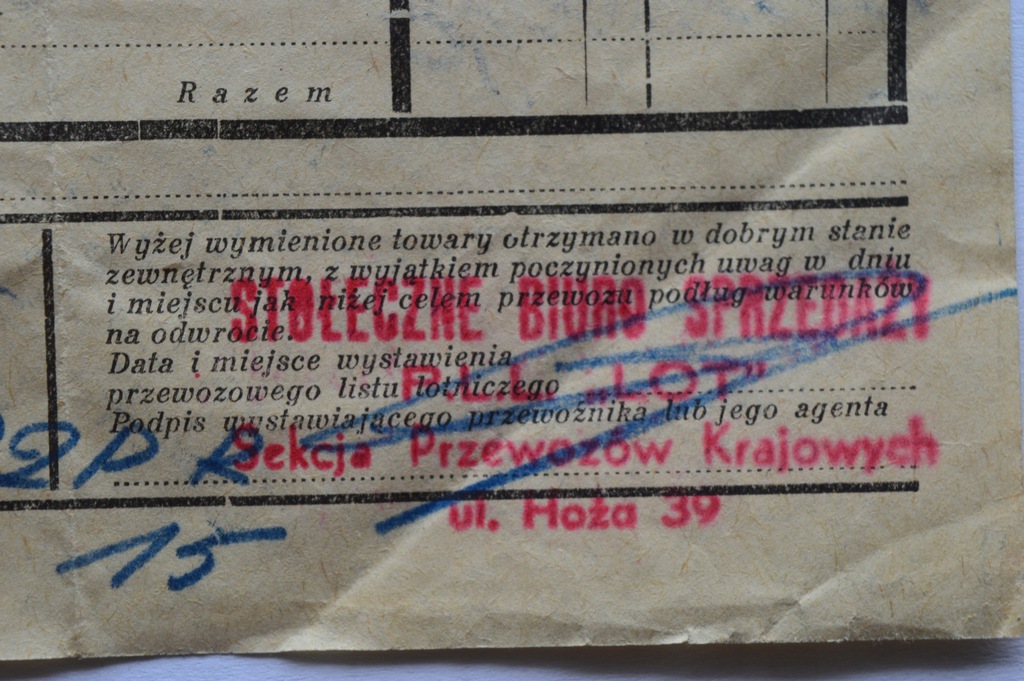 Razem
Wyżej wymienione towary otrzymano w dobrym stanie
zewnętrznym, z wyjątkiem poczynionych uwag w dniu
i miejscu jak niżej celem przewozu podług warunków
na odwrocie.
STOŁECZNE BIURO SPRZEDAŻY
Data i miejsce wystawienia
P.L.L. „LOT"
przewozowego listu lotniczego
Podpis wystawiającego przewoźnika lub jego agenta
Sekcja Przewozów Krajowych
ul. Hoża 39
15